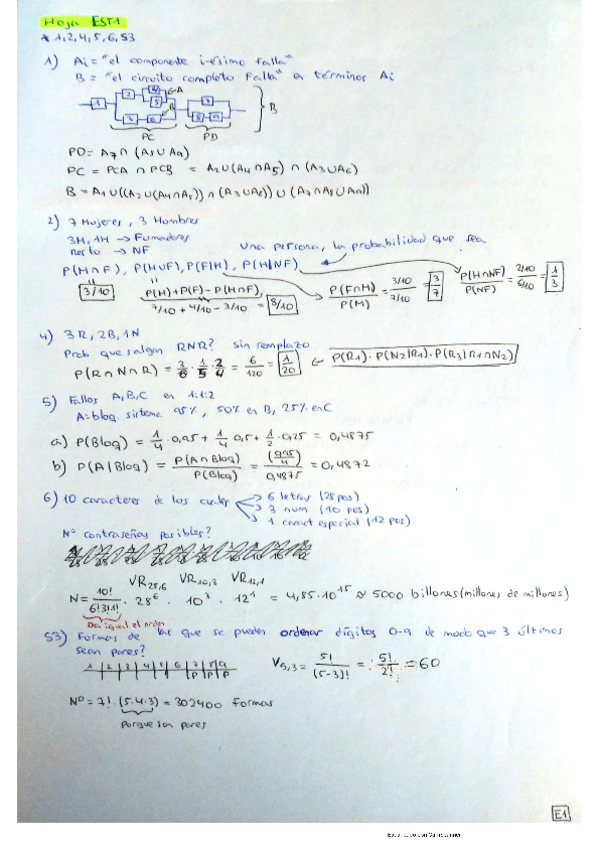 Hoja EST1
* 1,2,4,5,6,S3
1) Ai = "el componente i-ésimo falla"
B = "el circuito completo falla" en términos Ai
1 2 4 5 A 3 6 B 7 8 9 B
PC PD
PD = A7 ∩ (A8 ∪ A9)
PC = PCA ∩ PCB = A2 ∪ (A4 ∩ A5) ∩ (A3 ∪ A6)
B = A1 ∪ ((A2 ∪ (A4 ∩ A5)) ∩ (A3 ∪ A6)) ∪ (A7 ∩ (A8 ∪ A9))
2) 7 Mujeres, 3 Hombres
3M, 1H → Fumadores
resto → NF
Una persona, la probabilidad que sea
P(M∩F), P(M∪F), P(F|M), P(H|NF)
3/10
P(M)+P(F)-P(M∩F)
7/10 + 4/10 - 3/10 = 8/10
P(F∩M)/P(M) = 3/10 / 7/10 = 3/7
P(H∩NF)/P(NF) = 2/10 / 6/10 = 1/3
4) 3R, 2B, 1N
Prob que salgan RNR? sin remplazo
P(R∩N∩R) = 3/6 · 1/5 · 2/4 = 6/120 = 1/20 ← P(R1) · P(N2|R1) · P(R3|R1∩N2)
5) Fallos A, B, C en 1:1:2
A = bloq. sistema 95%, 50% en B, 25% en C
a) P(Bloq) = 1/4 · 0,95 + 1/4 0,5 + 1/2 · 0,25 = 0,4875
b) P(A|Bloq) = P(A∩Bloq)/P(Bloq) = (0,95/4)/0,4875 = 0,4872
6) 10 caracteres de los cuales
6 letras (28 pos)
3 num (10 pos)
1 caract especial (12 pos)
Nº contraseñas posibles?
VR28,6 VR10,3 VR12,1
N = 10!/6!3!1! · 28^6 · 10^3 · 12^1 = 4,85·10^15 ≈ 5000 billones (millones de millones)
Da igual el orden
S3) Formas de las que se pueden ordenar dígitos 0-9 de modo que 3 últimos
sean pares?
1 2 3 4 5 6 7 8 9
P P P
V5,3 = 5!/(5-3)! = 5!/2! = 60
Nº = 7! · (5·4·3) = 302400 formas
porque son pares
E1